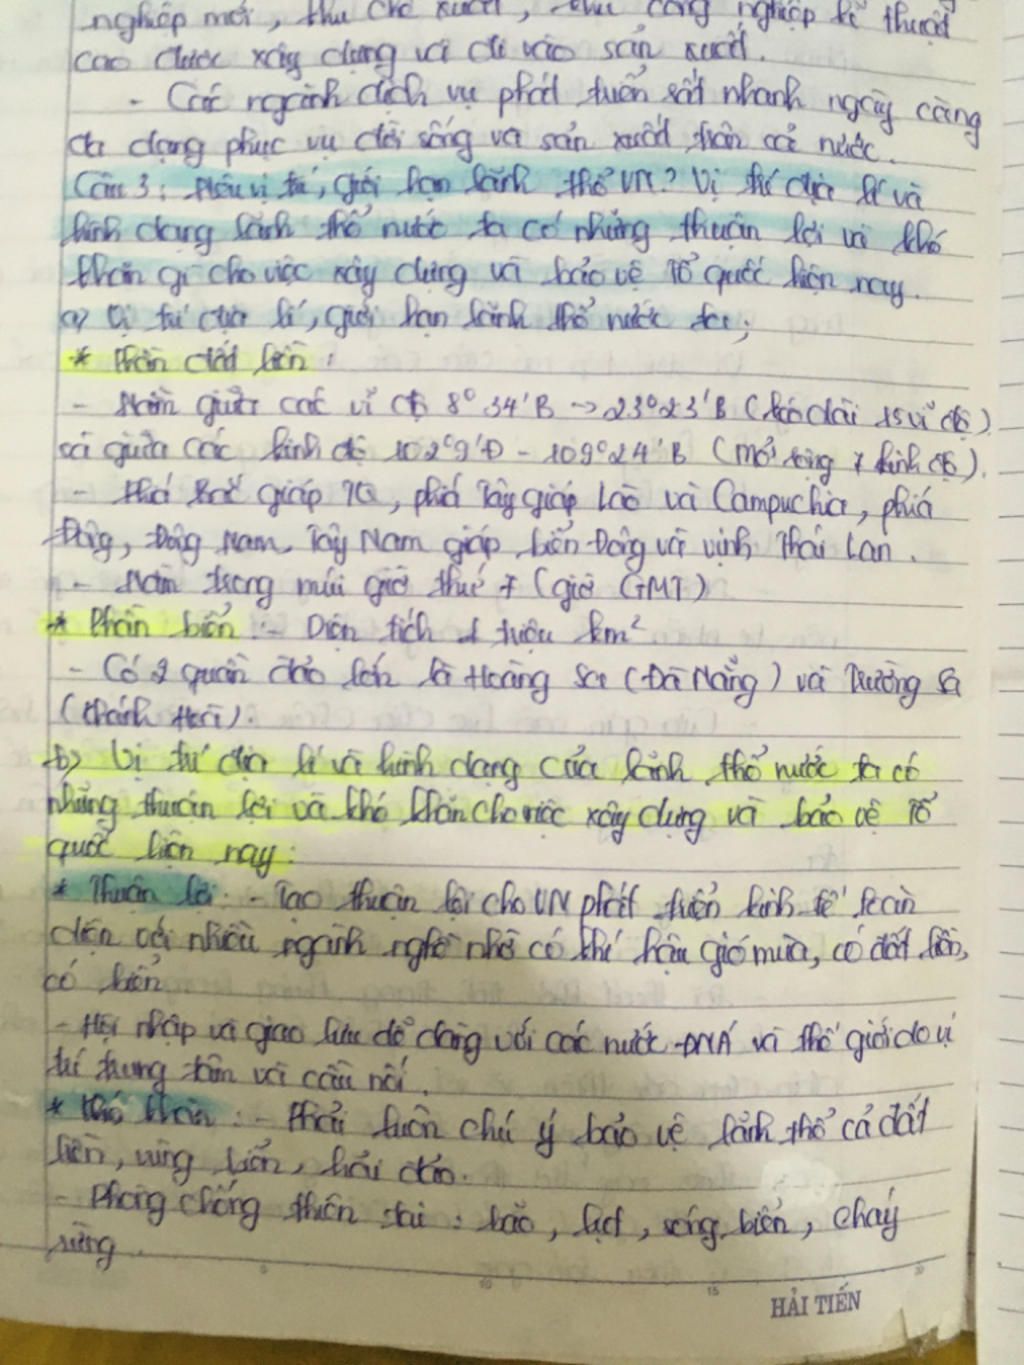 nghiệp mới, khu chế xuất, khu công nghiệp kĩ thuật
cao được xây dựng và đi vào sản xuất.
- Các ngành dịch vụ phát triển rất nhanh ngày càng
đa dạng phục vụ đời sống và sản xuất trên cả nước.
Câu 3: Nêu vị trí, giới hạn lãnh thổ VN? Vị trí địa lí và
hình dạng lãnh thổ nước ta có những thuận lợi và khó
khăn gì cho việc xây dựng và bảo vệ Tổ quốc hiện nay.
a) Vị trí địa lí, giới hạn lãnh thổ nước ta;
* Phần đất liền:
- Nằm giữa các vĩ độ 8°34'B → 23°23'B (kéo dài 15 vĩ độ)
và giữa các kinh độ 102°9'Đ - 109°24'B (mở rộng 7 kinh độ).
- Phía Bắc giáp TQ, phía Tây giáp Lào và Campuchia, phía
Đông, Đông Nam, Tây Nam giáp biển Đông và vịnh Thái Lan.
- Nằm trong múi giờ thứ 7 (giờ GMT)
* Phần biển: - Diện tích 1 triệu km²
- Có 2 quần đảo lớn là Hoàng Sa (Đà Nẵng) và Trường Sa
(Khánh Hoà).
b) Vị trí địa lí và hình dạng của lãnh thổ nước ta có
những thuận lợi và khó khăn cho việc xây dựng và bảo vệ Tổ
quốc hiện nay:
* Thuận lợi: - Tạo thuận lợi cho VN phát triển kinh tế toàn
diện với nhiều ngành nghề nhờ có khí hậu gió mùa, có đất liền,
có biển
- Hội nhập và giao lưu dễ dàng với các nước ĐNÁ và thế giới do vị
trí trung tâm và cầu nối.
* Khó khăn: - Phải luôn chú ý bảo vệ lãnh thổ cả đất
liền, vùng biển, hải đảo.
- Phòng chống thiên tai: bão, lụt, sóng biển, cháy
rừng.
HẢI TIẾN